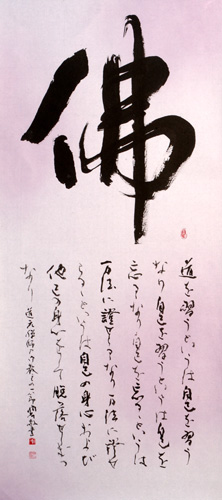 佛
道を習うというは自己を習う
なり自己を習うというは自己を
忘るるなり自己を忘るるというは
万法に證せらるなり万法に證せ
らるというは自己の身心および
他己の身心をして脱落せしむる
なり 道元禅師の